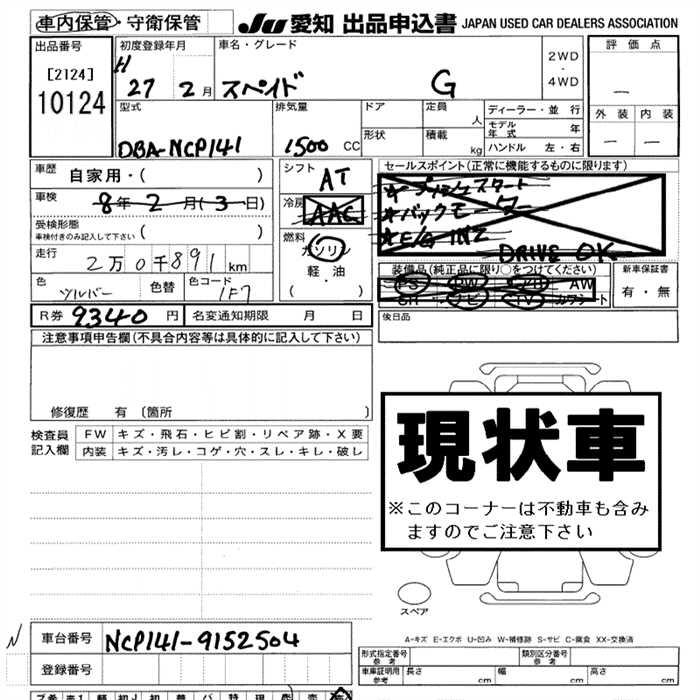 車内保管・守衛保管 JU 愛知 出品申込書 JAPAN USED CAR DEALERS ASSOCIATION
出品番号 初度登録年月 車名・グレード 評価点
[2124] H 27 2月 スペイド G 2WD・4WD
10124 —
型式 排気量 ドア 定員 人 ディーラー・並行 外装 内装
DBA-NCP141 1500 CC 形状 積載 kg モデル年式 年 — —
ハンドル 左・右
車歴 自家用・( ) シフト AT セールスポイント(正常に機能するものに限ります)
車検 8年2月(3日) 冷房 AAC
受検形態 車検付きのみ記入して下さい ( ) 燃料 ガソリン
*プッシュスタート
*バックモニター
*E/G INZ
DRIVE OK
走行 2万0千891km 軽油
( )
色 シルバー 色替 色コード 1F7
装備品(純正品に限り○をつけてください) 新車保証書
PS PW AW 有・無
SR ナビ TV カワシート
R券 9340円 名変通知期限 月 日 後日品
注意事項申告欄(不具合内容等は具体的に記入して下さい)
修復歴 有 [箇所 ]
検査員記入欄 FW キズ・飛石・ヒビ割・リペア跡・X要
内装 キズ・汚レ・コゲ・穴・スレ・キレ・破レ
現状車
※このコーナーは不動車も含み
ますのでご注意下さい
スペア
A-キズ E-エクボ U-凹み W-補修跡 S-サビ C-腐食 XX-交換済
N 車台番号 NCP141-9152504
登録番号
型式指定番号 参考 類別区分番号 参考
車庫証明用 参考 長さ cm 幅 cm 高さ cm